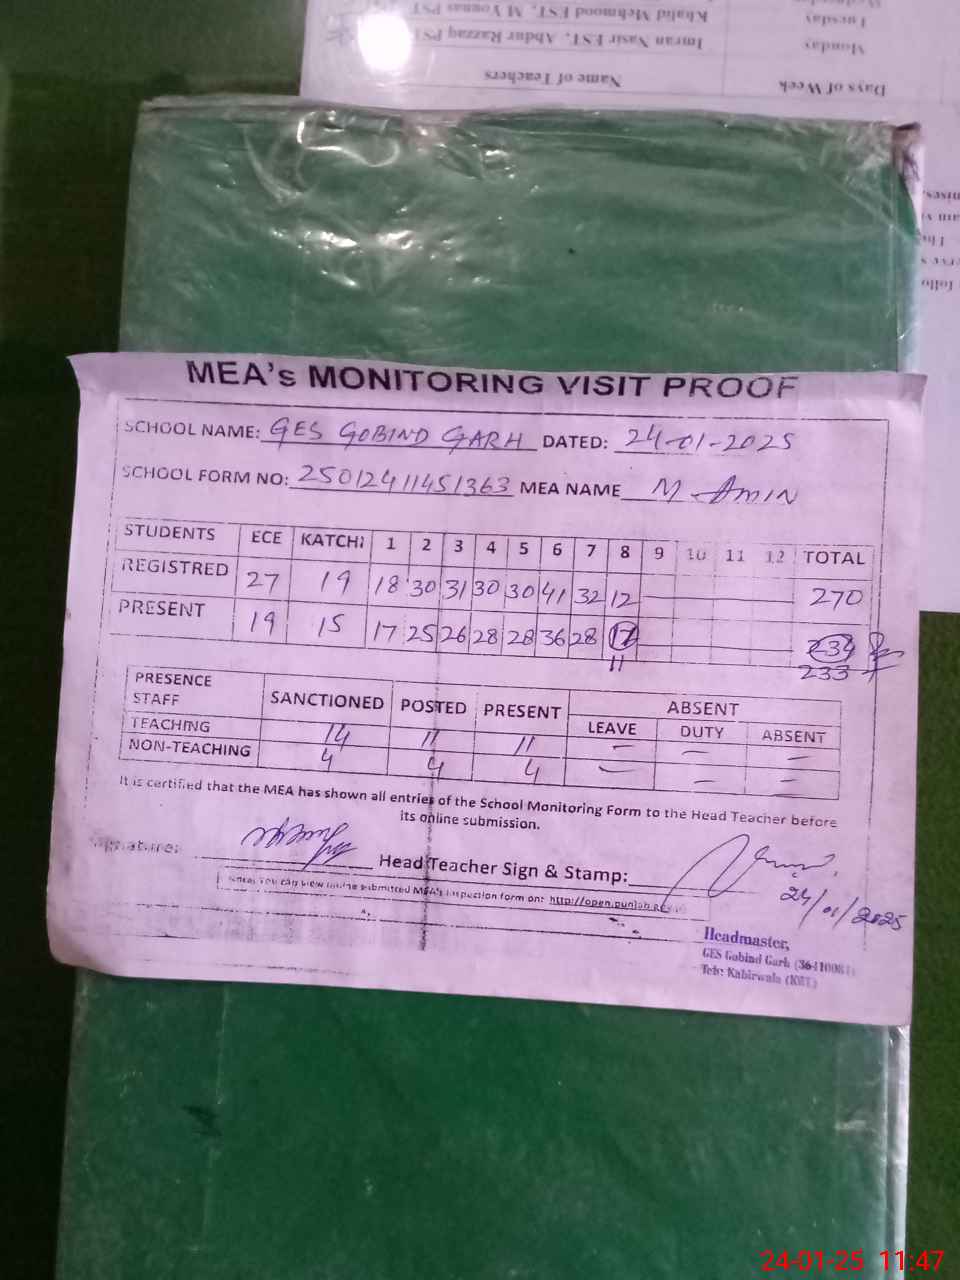 Khalid Mehmood EST, M Younas PST
Tuesday
Imran Nasir EST, Abdur Razzaq PST
Monday
Name of Teachers
Days of Week
MEA's MONITORING VISIT PROOF
SCHOOL NAME: GES GOBIND GARH DATED: 24-01-2025
SCHOOL FORM NO: 25012411451363 MEA NAME M AMIN
STUDENTS ECE KATCHI 1 2 3 4 5 6 7 8 9 10 11 12 TOTAL
REGISTRED 27 19 18 30 31 30 30 41 32 12 270
PRESENT 19 15 17 25 26 28 28 36 28 12 234
11 233
PRESENCE STAFF SANCTIONED POSTED PRESENT ABSENT
LEAVE DUTY ABSENT
TEACHING 14 11 11 – – –
NON-TEACHING 4 4 4 – – –
It is certified that the MEA has shown all entries of the School Monitoring Form to the Head Teacher before
its online submission.
Signature: Head Teacher Sign & Stamp:
24/01/2025
Note: You can view online submitted MEA's inspection form on: http://open.punjab.gov.pk
Headmaster,
GES Gobind Garh
Teh: Kabirwala (KWL)
24-01-25 11:47